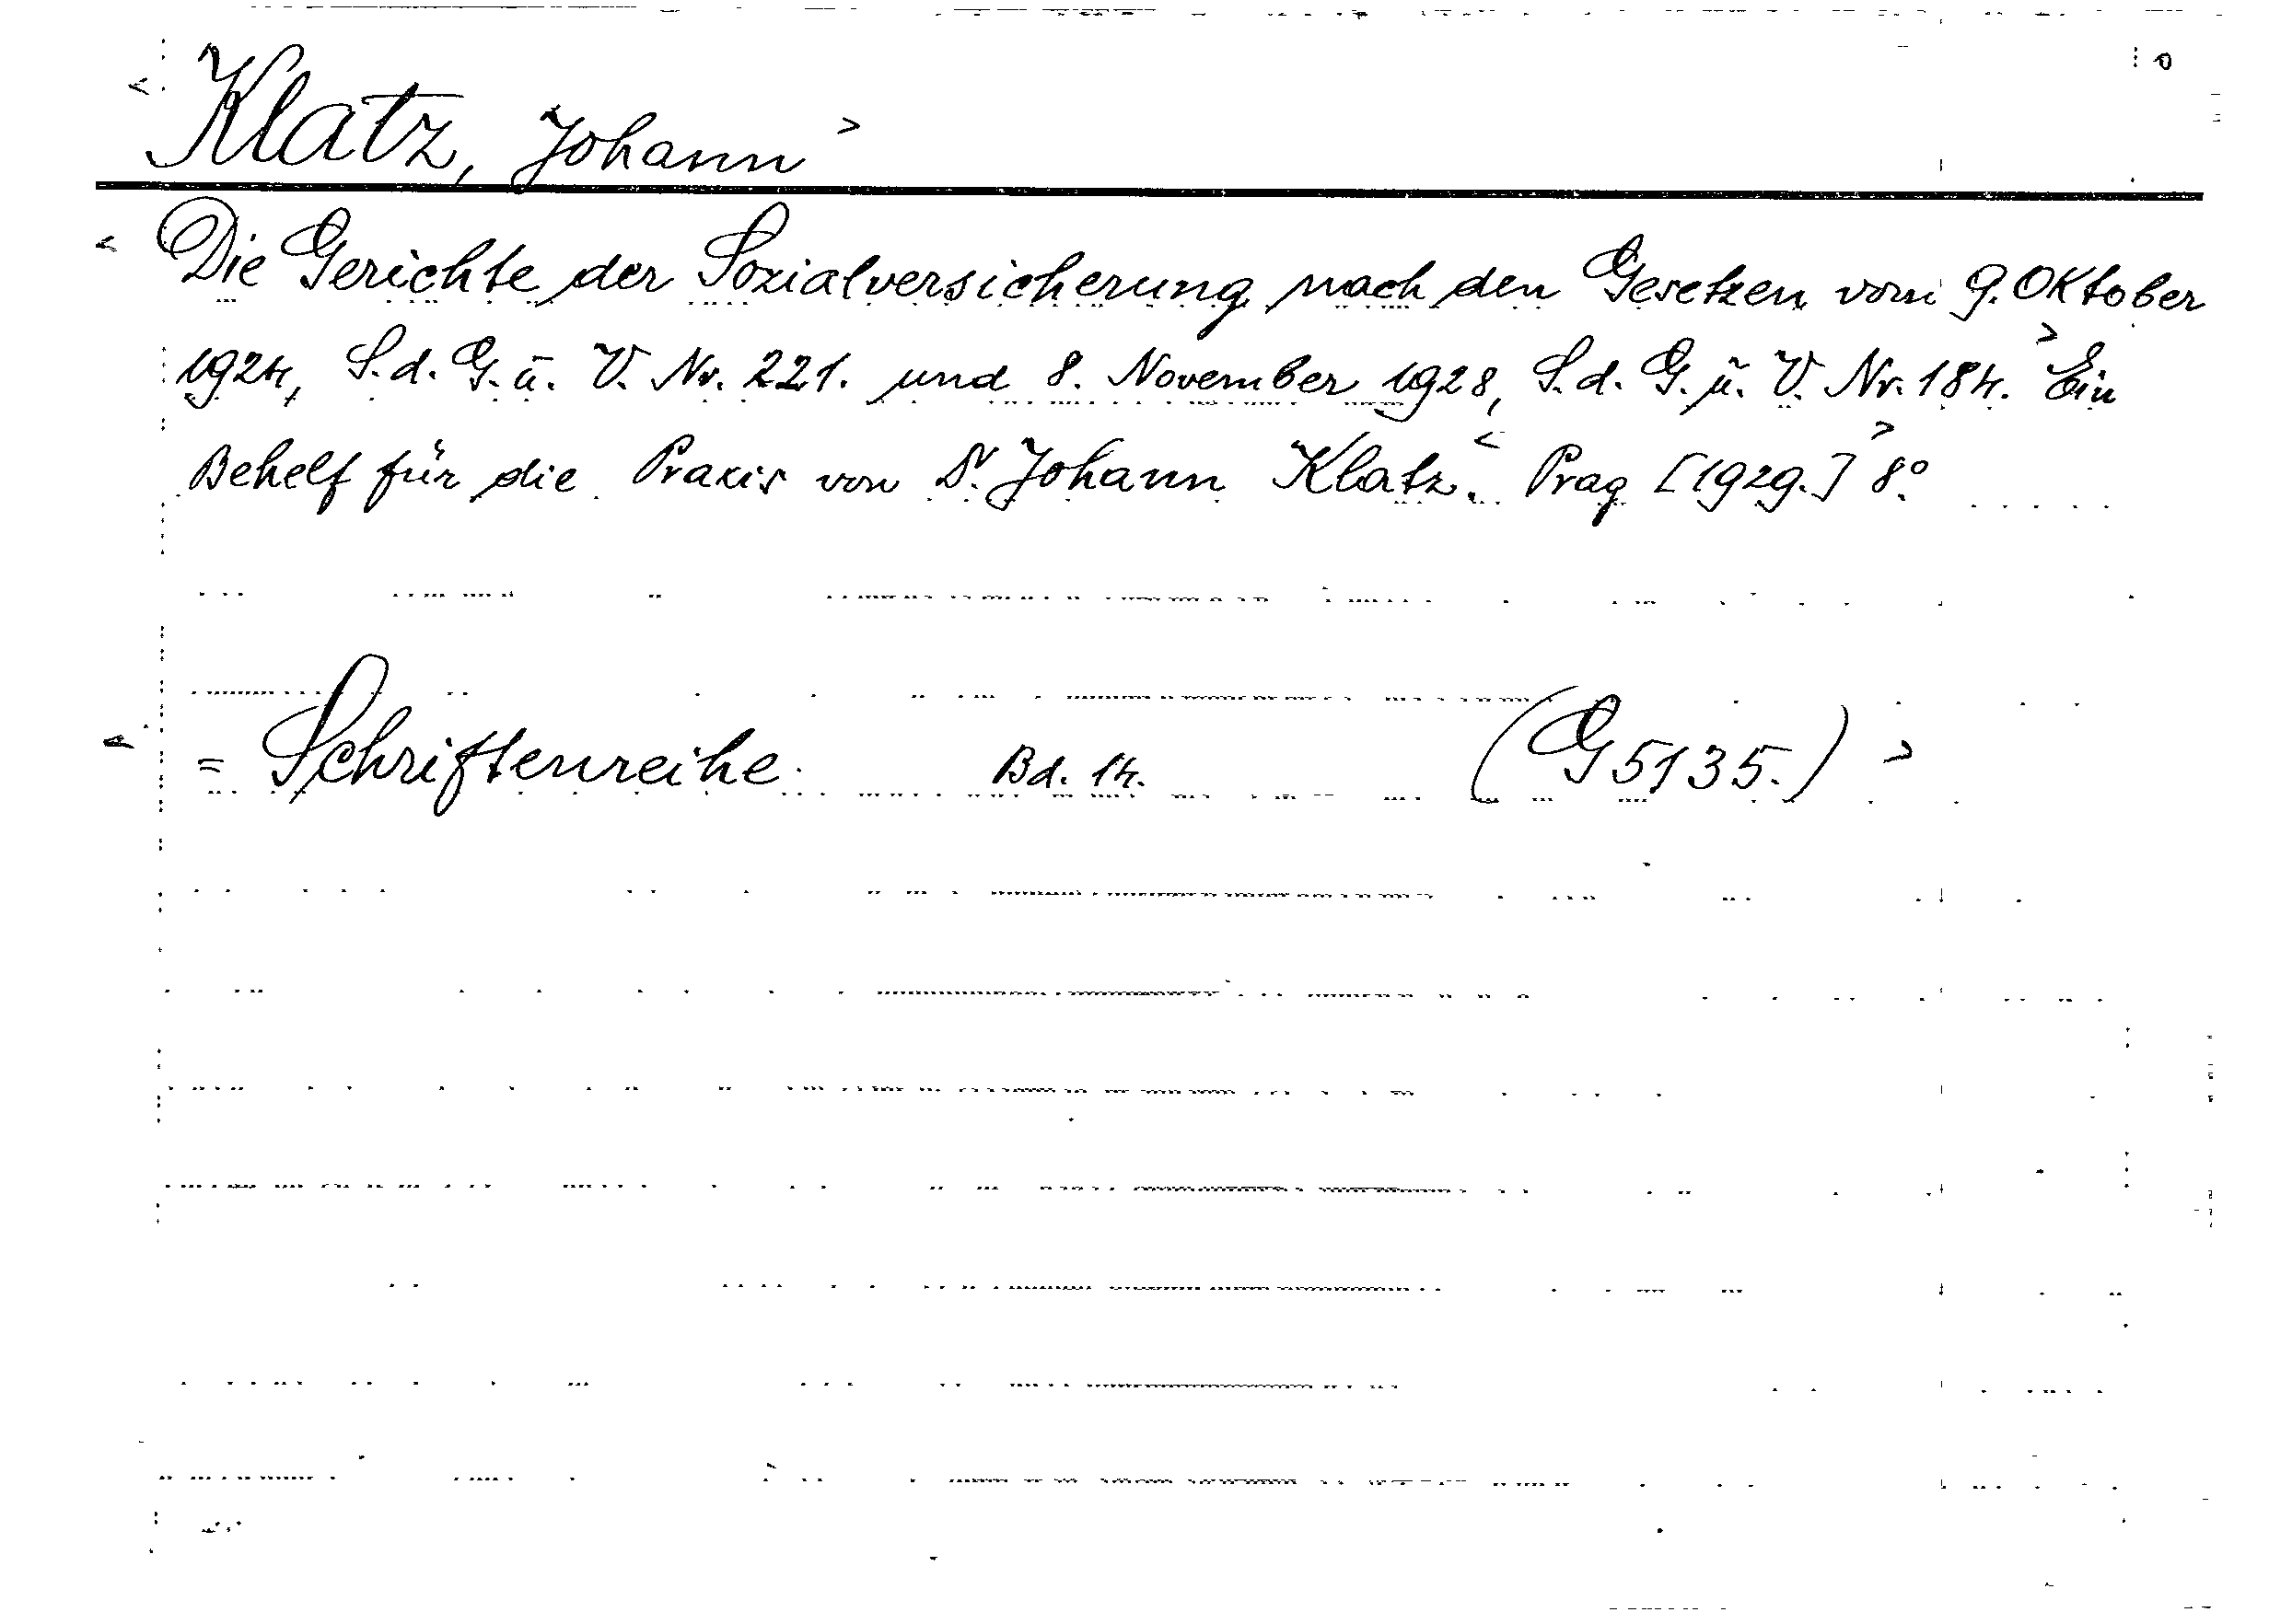 Klatz, Johann
Die Gerichte der Sozialversicherung nach den Gesetzen vom 9. Oktober
1924, S. d. G. u. V. Nr. 221. und 8. November 1928, S. d. G. u. V. Nr. 184. Ein
Behelf für die Praxis von Dr. Johann Klatz. Prag [1929.] 8°.
= Schriftenreihe. Bd. 14. (G 5135.)